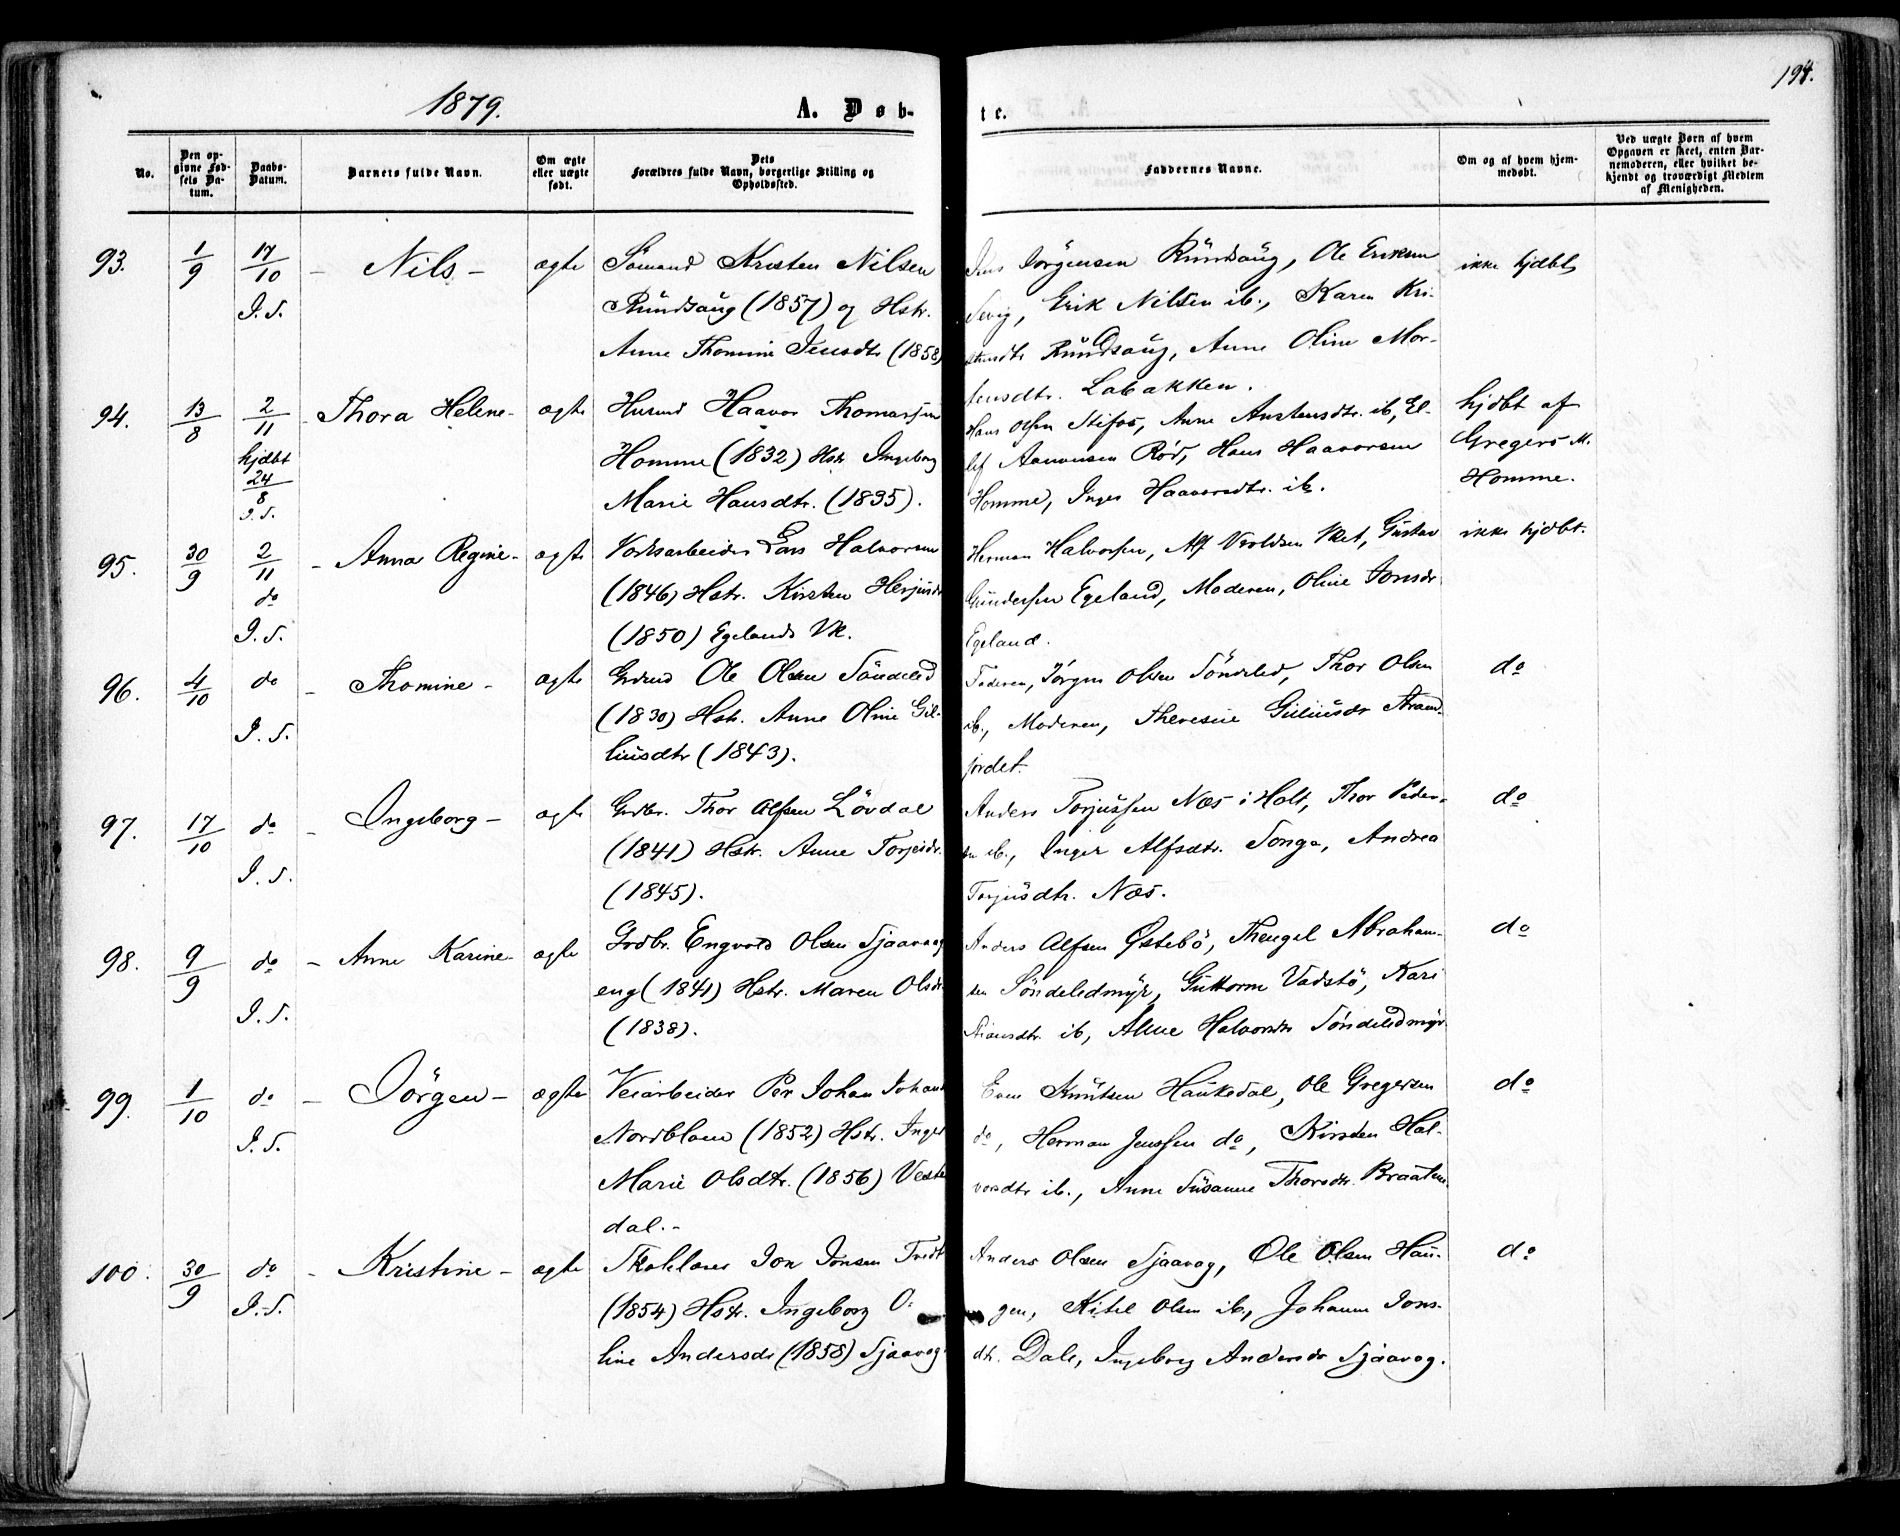 1879.
A. Døb-
te.
194.
No.
Den op-
givne Fød-
sels Da-
tum.
Daabs-
Datum.
Barnets fulde Navn.
Om ægte
eller uægte
født.
Dets
Forældres fulde Navn, borgerlige Stilling og
Opholdssted.
Faddernes Navne.
Om og af hvem hjem-
medøbt.
Ved uægte Børn af hvem
Opgaven er skeet, enten Bar-
nemoderen, eller hvilket be-
kjendt og troværdigt Medlem
af Menigheden.
93. 1/9 17/10 I. S. – Nils – ægte
Sömand Kristen Nilsen
Rundsaug (1857) og Hstr.
Anne Thomine Jensdtr (1858)
Jens Jörgensen Rundsaug, Ole Eriksen
Sevig, Erik Nilsen ib., Karen Kri-
stensdtr Rundsaug, Anne Oline Mor-
tensdtr. Labakken.
ikke hjdbt
94. 13/8 2/11 hjdbt 24/8 I. S. – Thora Helene – ægte
Husmd Haavor Thomassen
Homme (1832) Hstr Ingeborg
Marie Hansdtr. (1835).
Hans Olsen Stifos, Anne Anstensdtr. ib, El-
lef Aanonsen Rød, Hans Haavorsen
Homme, Inger Haavorsdtr. ib.
hjdbt af
Gregers M.
Homme.
95. 30/9 2/11 do I. S. – Anna Regine – ægte
Værksarbeider Lars Halvorsen
(1846) Hstr. Kirsten Herjusdr
(1850) Egelands Vk.
Herman Halvorsen, Alf Vroldsen Vket, Gustav
Gundersen Egeland, Moderen, Oline Jonsdr
Egeland.
ikke hjdbt.
96. 4/10 do I. S. – Thomine – ægte
Grdmd Ole Olsen Söndeled
(1830) Hstr. Anne Oline Gil-
liusdtr (1843).
Faderen, Jörgen Olsen Söndeled, Thor Olsen
ib., Moderen, Theresie Giliusdr Strand-
jordet.
do
97. 17/10 do I. S. – Ingeborg – ægte
Grdbr. Thor Alfsen Lövdal
(1841) Hstr. Anne Torjusdr.
(1845).
Anders Torjussen Næs i Holt, Thor Peder-
sen ib., Inger Alfsdtr. Songe, Andrea
Torjusdtr. Næs.
do
98. 9/9 do I. S. – Anne Karine – ægte
Grdbr. Engvold Olsen Sjaavaag
eng (1841) Hstr. Maren Olsdr.
(1838).
Anders Alfsen Østebö, Thengel Abraham-
sen Söndeledmyr, Guttorm Vadstö, Kari
Stiansdtr. ib, Anne Halvorsdr Söndeledmyr
do
99. 1/10 do I. S. – Jörgen – ægte
Veiarbeider Per Johan Johans
Nordblom (1852) Hstr. Inger
Marie Olsdtr. (1856) Veste
dal.-
Even Knutsen Haukedal, Ole Gregersen
do, Herman Jenssen do, Kirsten Hal-
vorsdtr ib., Anne Susanne Thorsdr. Braaten
do
100. 30/9 do I. S. – Kristine – ægte
Skolelærer Jon Jonsen Tvedt
(1854) Hstr. Ingeborg O-
line Andersdr (1858) Sjaavag
Anders Olsen Sjaavag, Ole Olsen Hau-
gen, Kitel Olsen ib., Johanne Jons-
dtr. Dale, Ingeborg Andersdr Sjaavag.
do